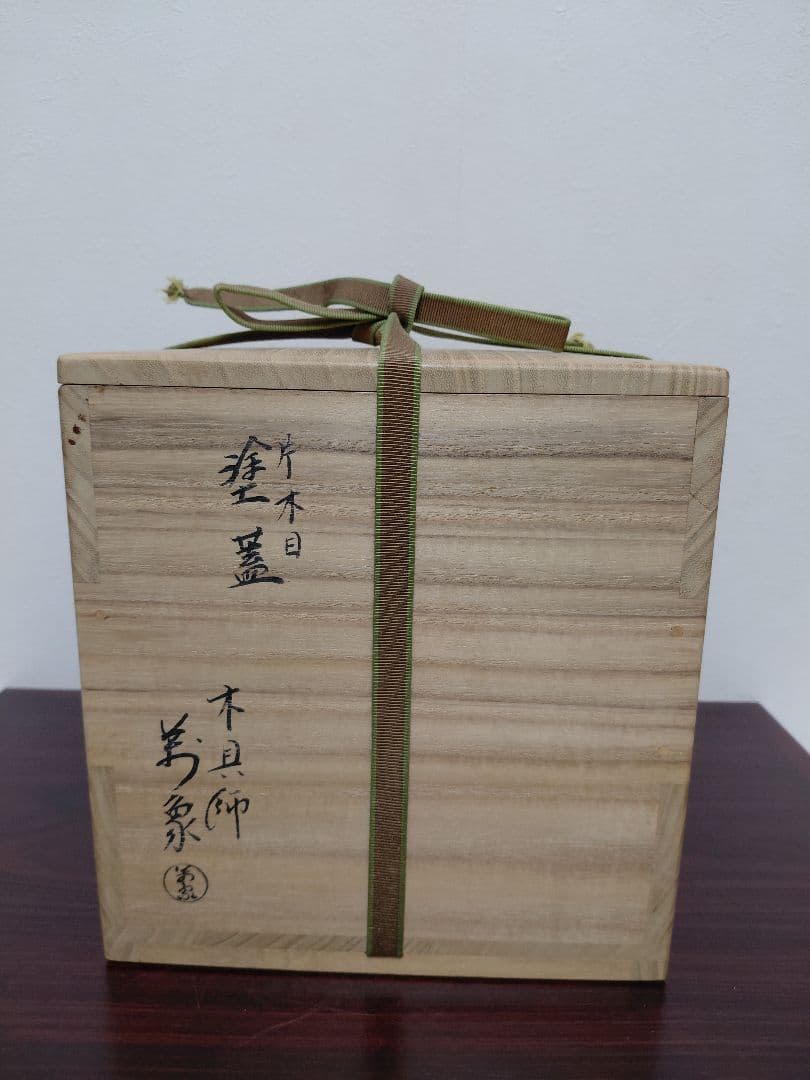 片木目
塗蓋
木具師
萬象